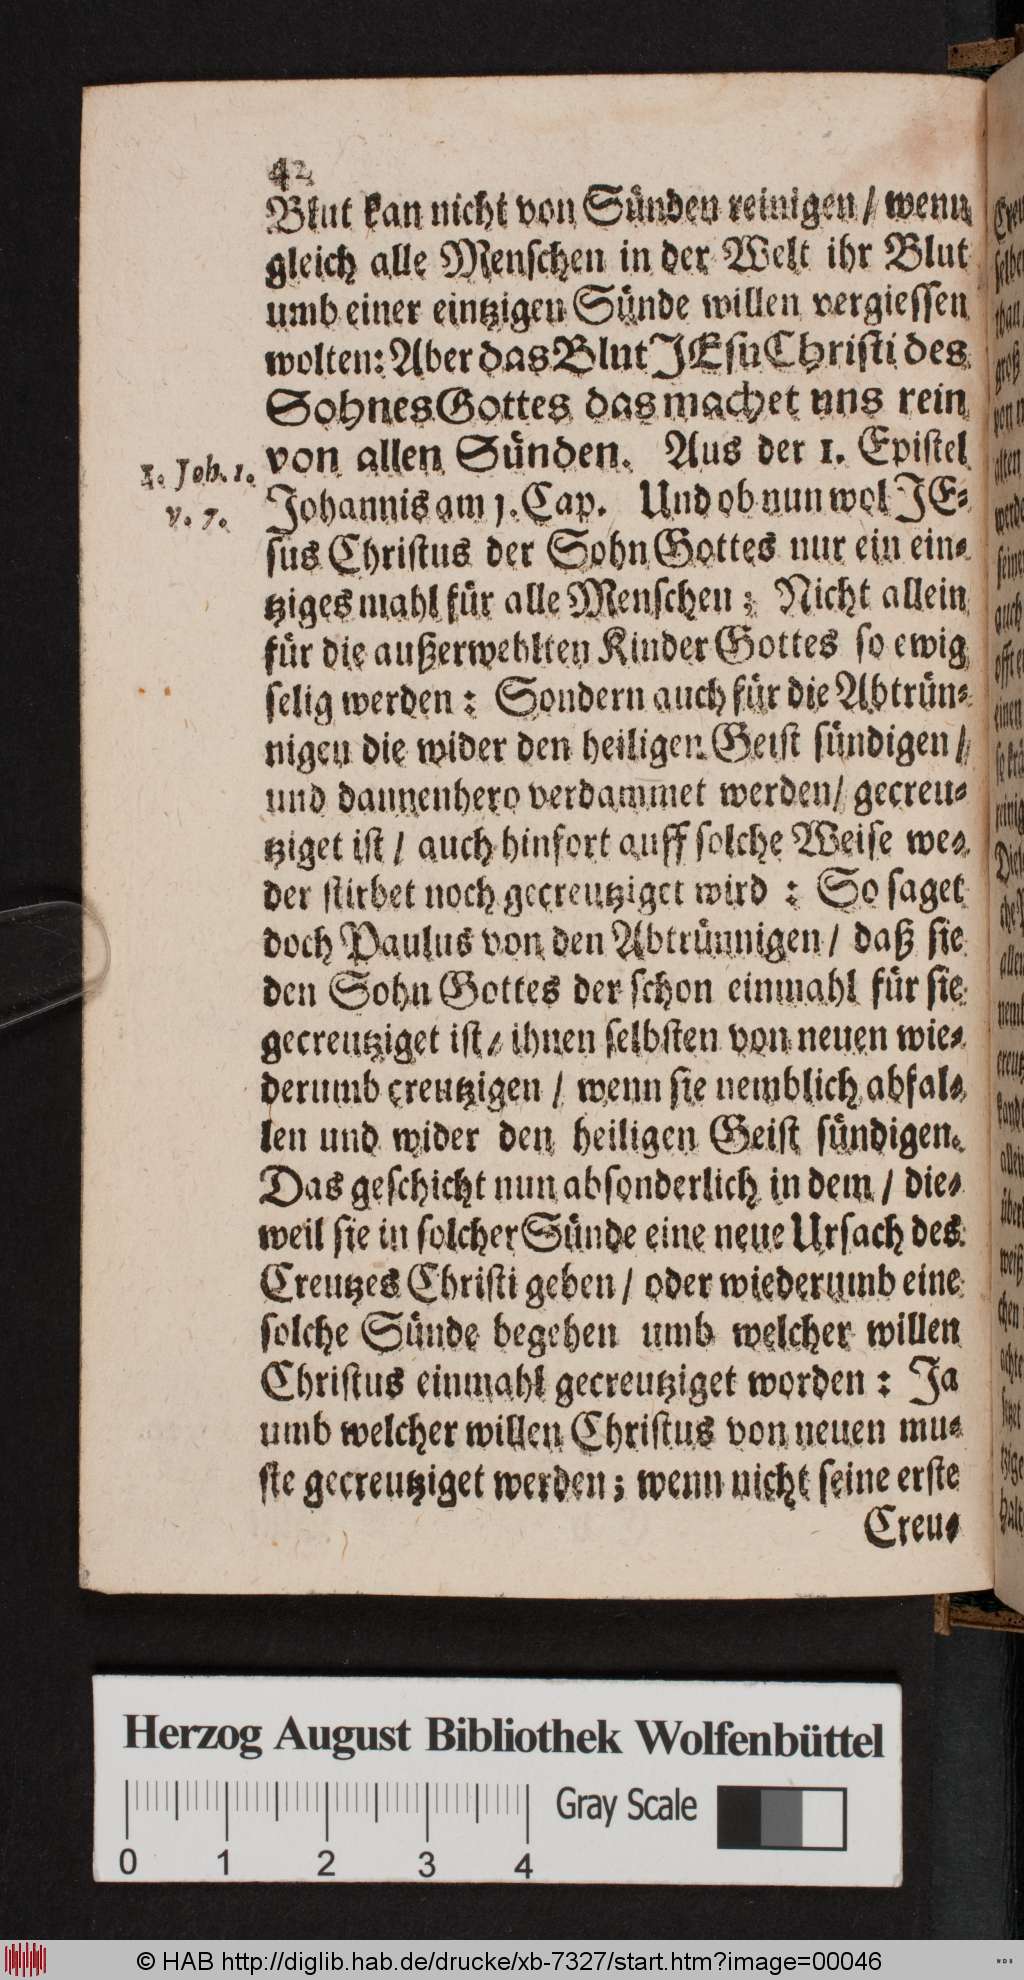 42
Blut kan nicht von Sünden reinigen / wenn
gleich alle Menschen in der Welt ihr Blut
umb einer eintzigen Sünde willen vergiessen
wolten: Aber das Blut JEsu Christi des
Sohnes Gottes das machet uns rein
von allen Sünden. Aus der 1. Epistel
1. Joh. 1.
v. 7.
Johannis am 1. Cap. Und ob nun wol JE-
sus Christus der Sohn Gottes nur ein ein-
tziges mahl für alle Menschen; Nicht allein
für die außerwehlten Kinder Gottes so ewig
selig werden: Sondern auch für die Abtrün-
nigen die wider den heiligen Geist sündigen /
und dannenhero verdammet werden / gecreu-
tziget ist / auch hinfort auff solche Weise we-
der stirbet noch gecreutziget wird: So saget
doch Paulus von den Abtrünnigen / daß sie
den Sohn Gottes der schon einmahl für sie
gecreutziget ist / ihnen selbsten von neuen wie-
derumb creutzigen / wenn sie nemblich abfal-
len und wider den heiligen Geist sündigen.
Das geschicht nun absonderlich in dem / die-
weil sie in solcher Sünde eine neue Ursach des
Creutzes Christi geben / oder wiederumb eine
solche Sünde begehen umb welcher willen
Christus einmahl gecreutziget worden: Ja
umb welcher willen Christus von neuen mu-
ste gecreutziget werden; wenn nicht seine erste
Creu-
Herzog August Bibliothek Wolfenbüttel
Gray Scale
0 1 2 3 4
© HAB http://diglib.hab.de/drucke/xb-7327/start.htm?image=00046